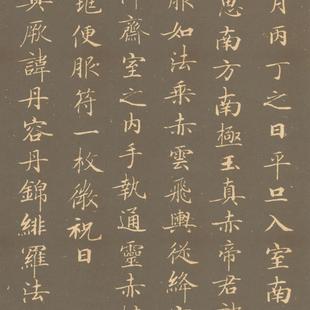 月丙丁之日平旦入室南
思南方南極玉真赤帝君
服如法乘赤雲飛輿從絳
齋室之內手執通靈赤
便服符一枚微祝曰
真厥諱丹容丹錦緋羅法